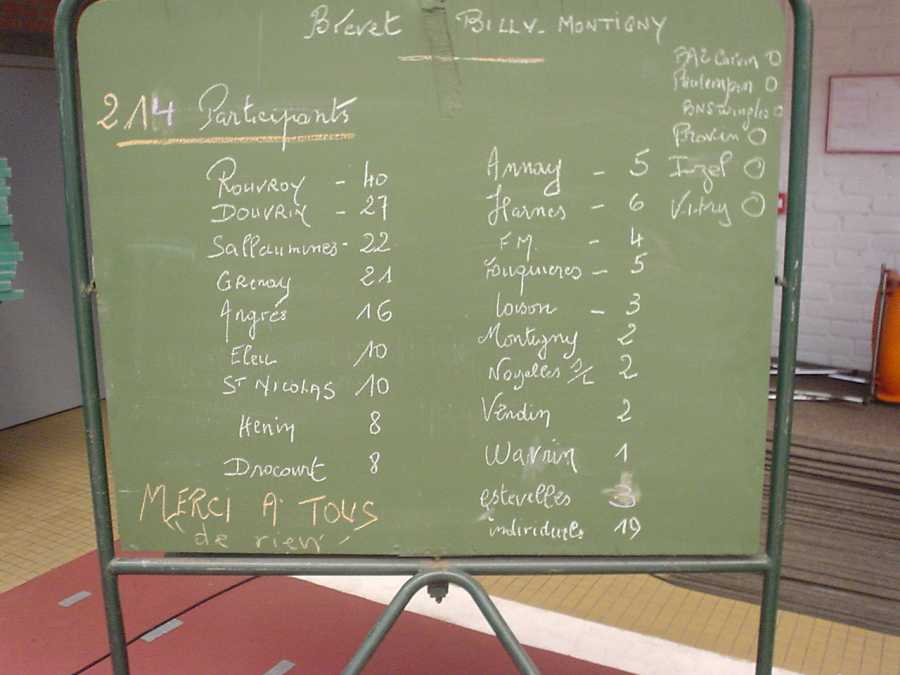 Brevet BILLY-MONTIGNY
214 Participants
ROUVROY - 40
DOUVRIN - 27
Sallaumines - 22
Grenay 21
Angres 16
Eleu 10
ST NICOLAS 10
Henin 8
Drocourt 8
MERCI A TOUS
"de rien"
Annay - 5
Harnes - 6
F.M. - 4
Fouquieres - 5
Loison - 3
Montigny 2
Noyelles S/L 2
Vendin 2
Wavrin 1
estevelles 3
individuels 19
Carvin 0
Phalempin 0
BNS Wingles 0
Provin 0
Izel 0
Vitry 0